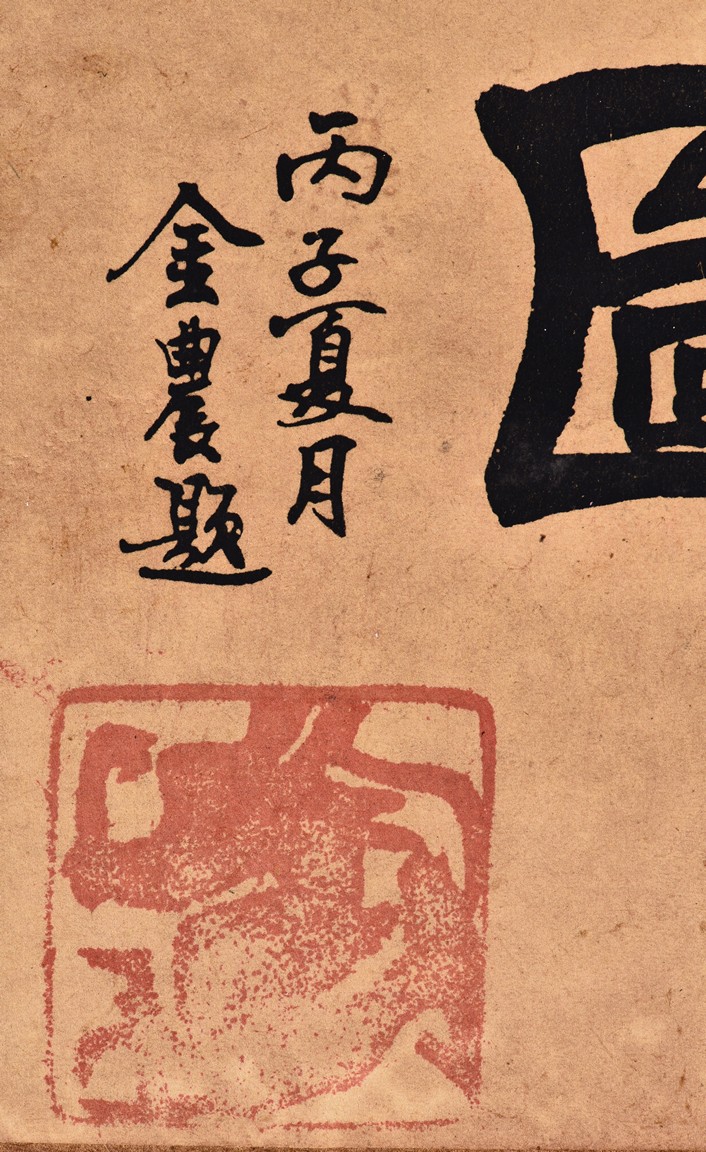 圖
丙子夏月
金農題